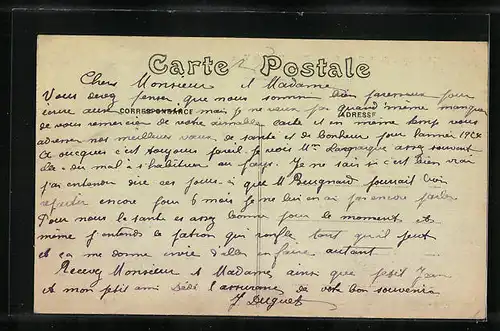 Carte Postale
CORRESPONDANCE
ADRESSE
Chers Monsieur et Madame
Vous devez penser que nous sommes bien paresseux pour
mais je ne veux pas quand même manquer
de vous remercier de votre aimable carte et en même temps vous
adresser nos meilleurs vœux de santé et de bonheur pour l'année
A c'est toujours pareil je vois Mme assez souvent
mal à s'habituer au pays. Je ne sais si c'est bien vrai
j'ai entendu dire ces jours-ci que Mr
encore pour 6 mois je ne lui en ai pas encore parler
Pour nous la santé es assez bonne pour le moment et
même j'entends le patron qui ronfle tant qu'il peut
et ça me donne envie d'en faire autant
Recevez Monsieur et Madame ainsi que petit Jean
et mon petit ami l'assurance de votre bon souvenir
J Duguet